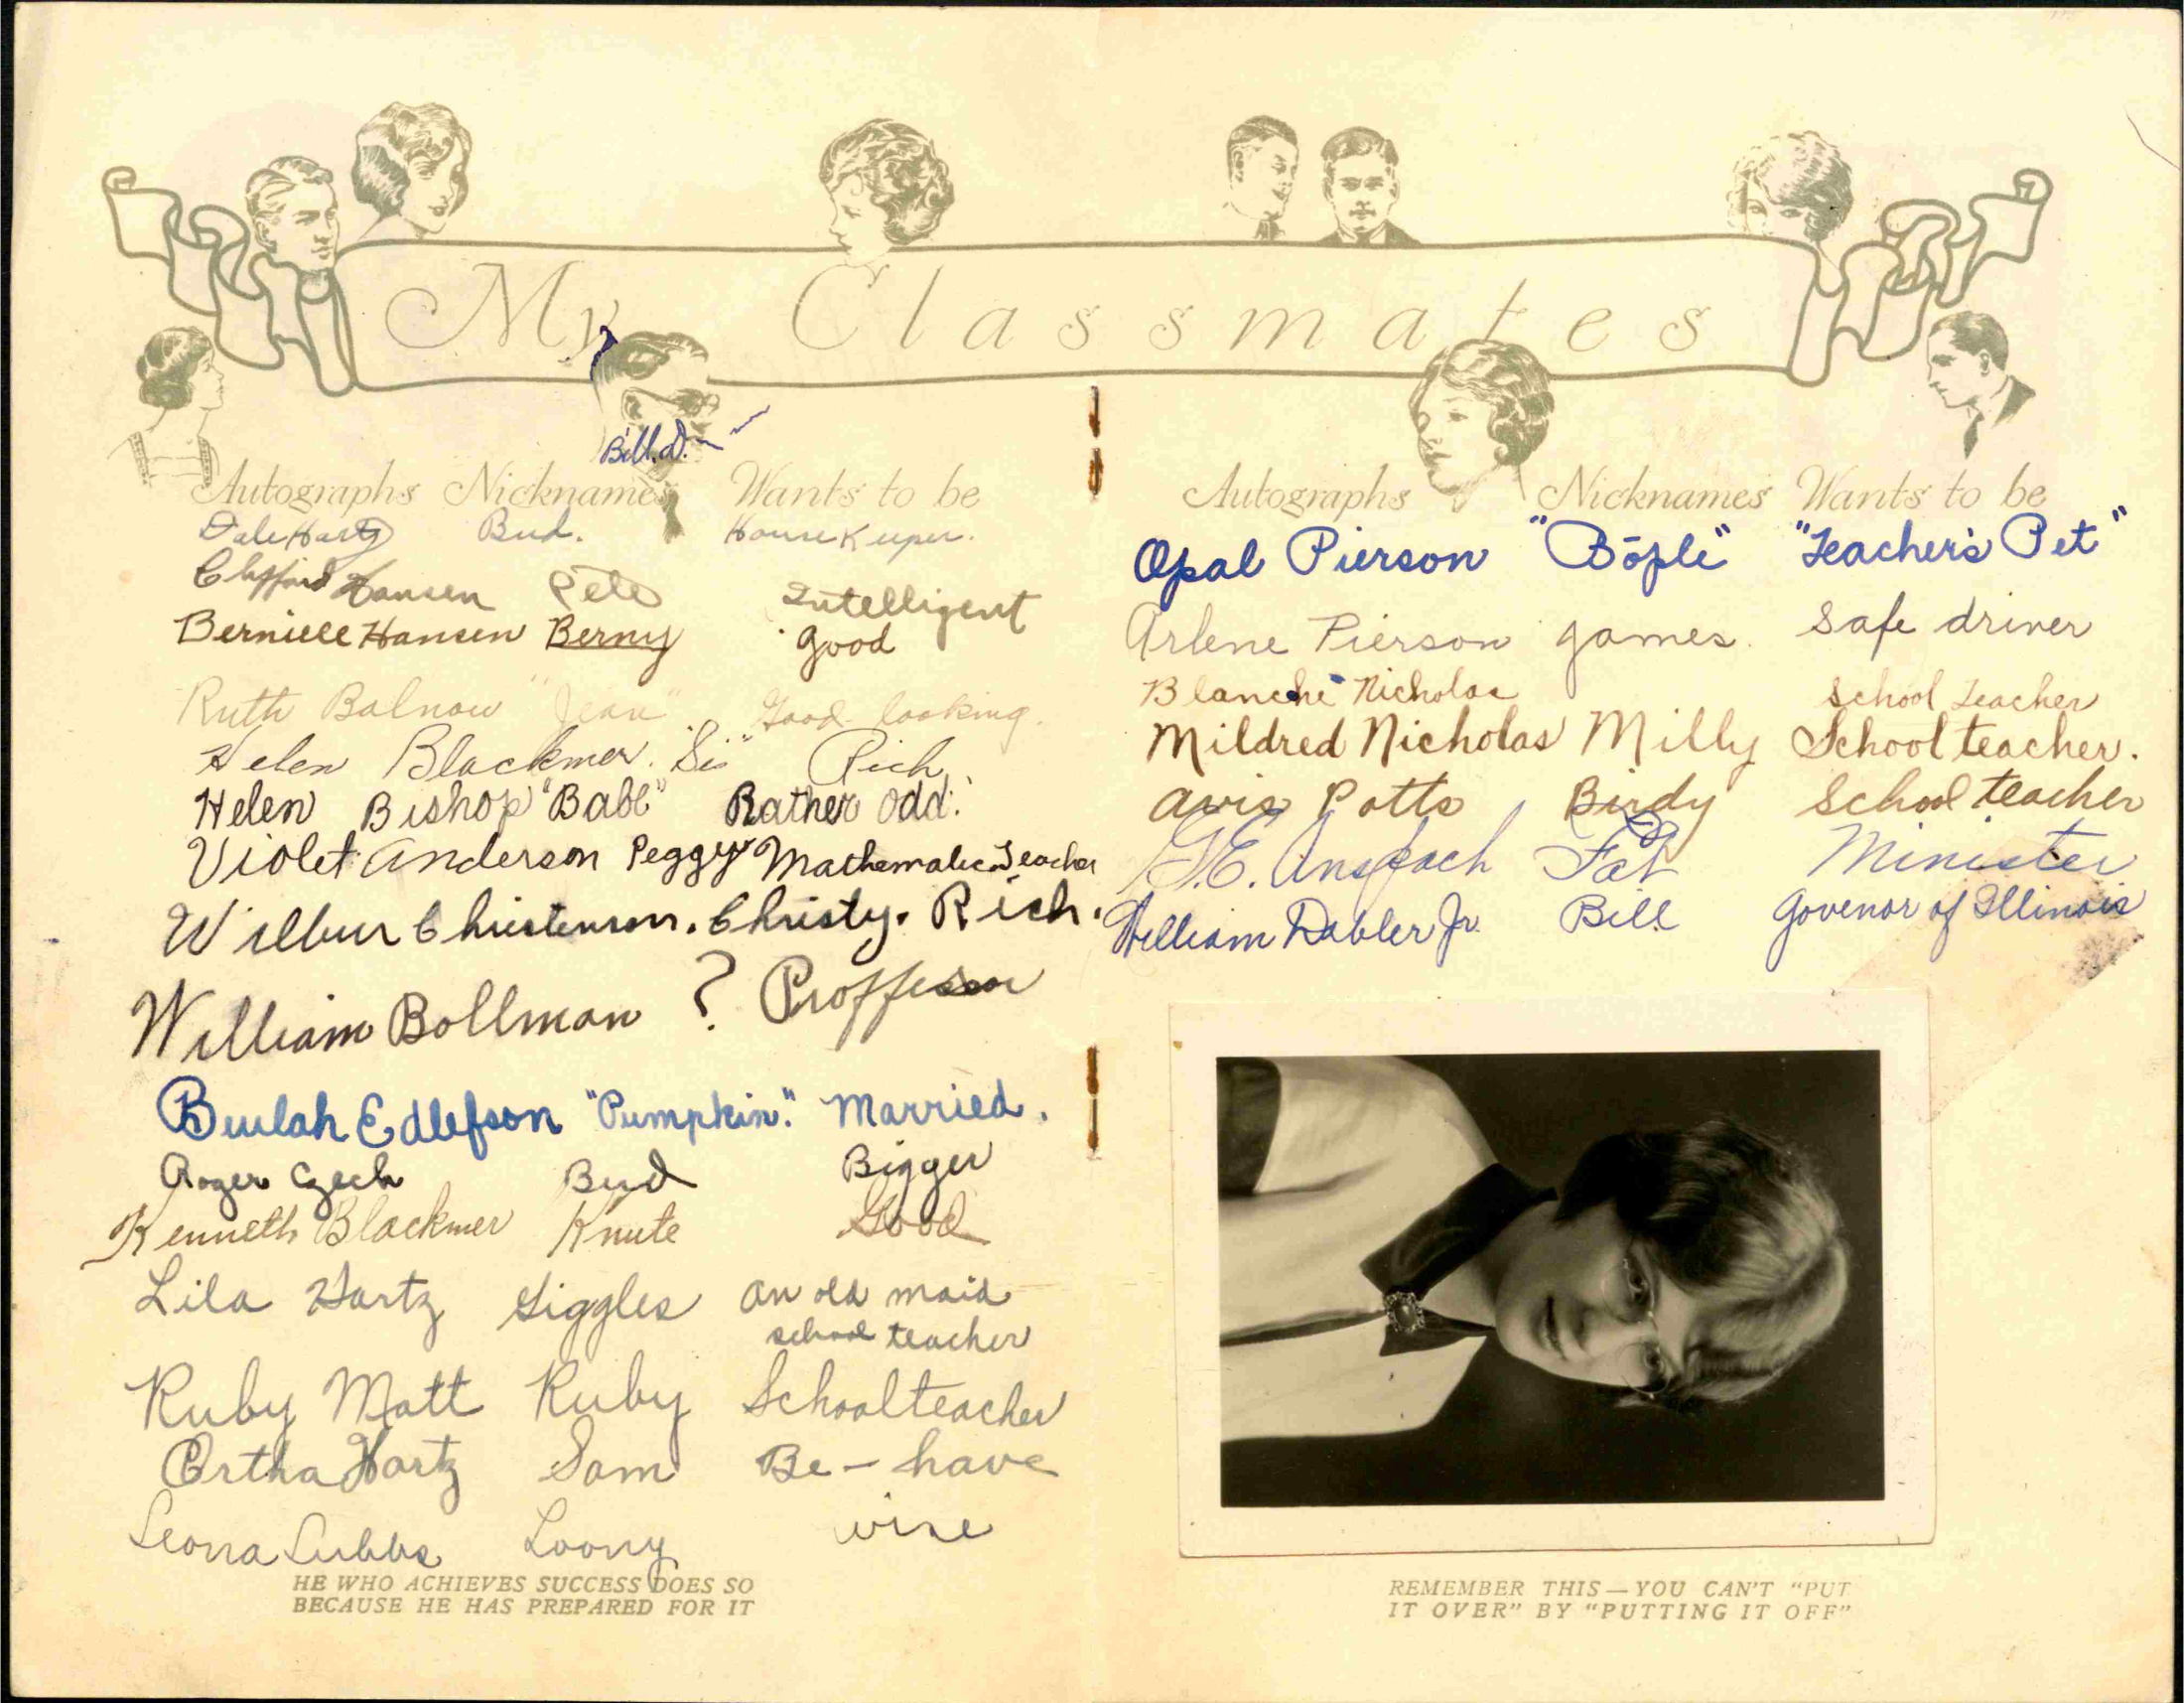 My Classmates
Bill. D.
Autographs Nicknames Wants to be
Dale Hartz Bud. House Keeper.
Clifford Hansen Pete Intelligent
Berniece Hansen Berny good
Ruth Balnow "Jean" Good looking.
Helen Blackmer. "Sis" Rich
Helen Bishop "Babe" Rather odd.
Violet Anderson Peggy Mathematics Teacher
Wilbur Christenson. Christy. Rich.
William Bollman ? Proffessor
Beulah Edlefson "Pumpkin." Married.
Roger Czech Bud Bigger
Kenneth Blackmer Knute Good
Lila Hartz Giggles an old maid
school teacher
Ruby Matt Ruby Schoolteacher
Ortha Hartz Sam Be-have
Leona Lubbs Loony wise
HE WHO ACHIEVES SUCCESS DOES SO
BECAUSE HE HAS PREPARED FOR IT
Autographs Nicknames Wants to be
Opal Pierson "Bōple" "Teacher's Pet"
Arlene Pierson games. Safe driver
Blanche Nicholas School teacher
Mildred Nicholas Milly School teacher.
Avis Potts Birdy School teacher
Anspach Fat Minister
William Dabler Jr. Bill Govenor of Illinois
REMEMBER THIS—YOU CAN'T "PUT
IT OVER" BY "PUTTING IT OFF"